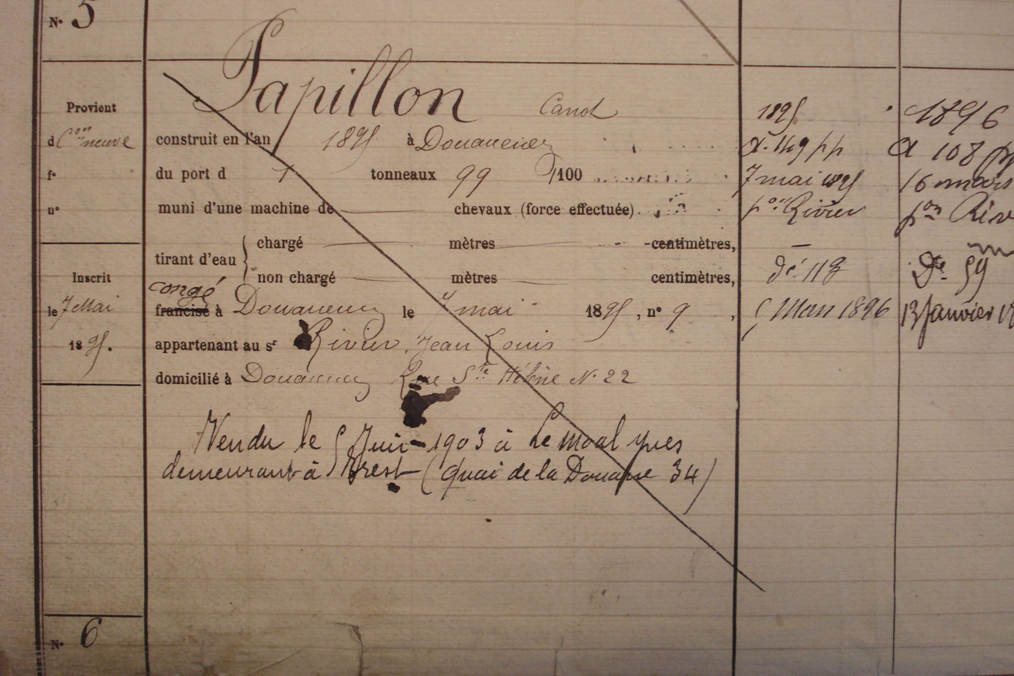 N° 5
Papillon Canot
Provient
d Con neuve construit en l'an 1895 à Douarnenez
f° du port d 1 tonneaux 99 /100
n° muni d'une machine de chevaux (force effectuée)
tirant d'eau { chargé mètres centimètres,
non chargé mètres centimètres,
Inscrit
le 7 Mai 1895.
congé
francisé à Douarnenez le 7 mai 1895, n° 9,
appartenant au sr Rivier, Jean Louis
domicilié à Douarnenez Rue Ste Hélène N° 22
Vendu le 5 Juin 1903 à Le Moal Yves
demeurant à Brest (quai de la Douane 34)
N° 6
1895
7 mai 1895
pon Rivier
dé 118
5 Mars 1896
1896
a 108
16 mars
pon Riv
Dé 59
13 Janvier